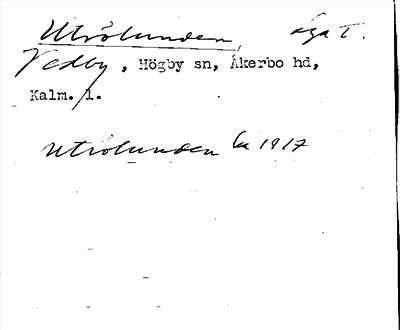 Utrölunden, äga t.
Vedby, Högby sn, Åkerbo hd,
Kalm. l.
Utrolunden La 1917